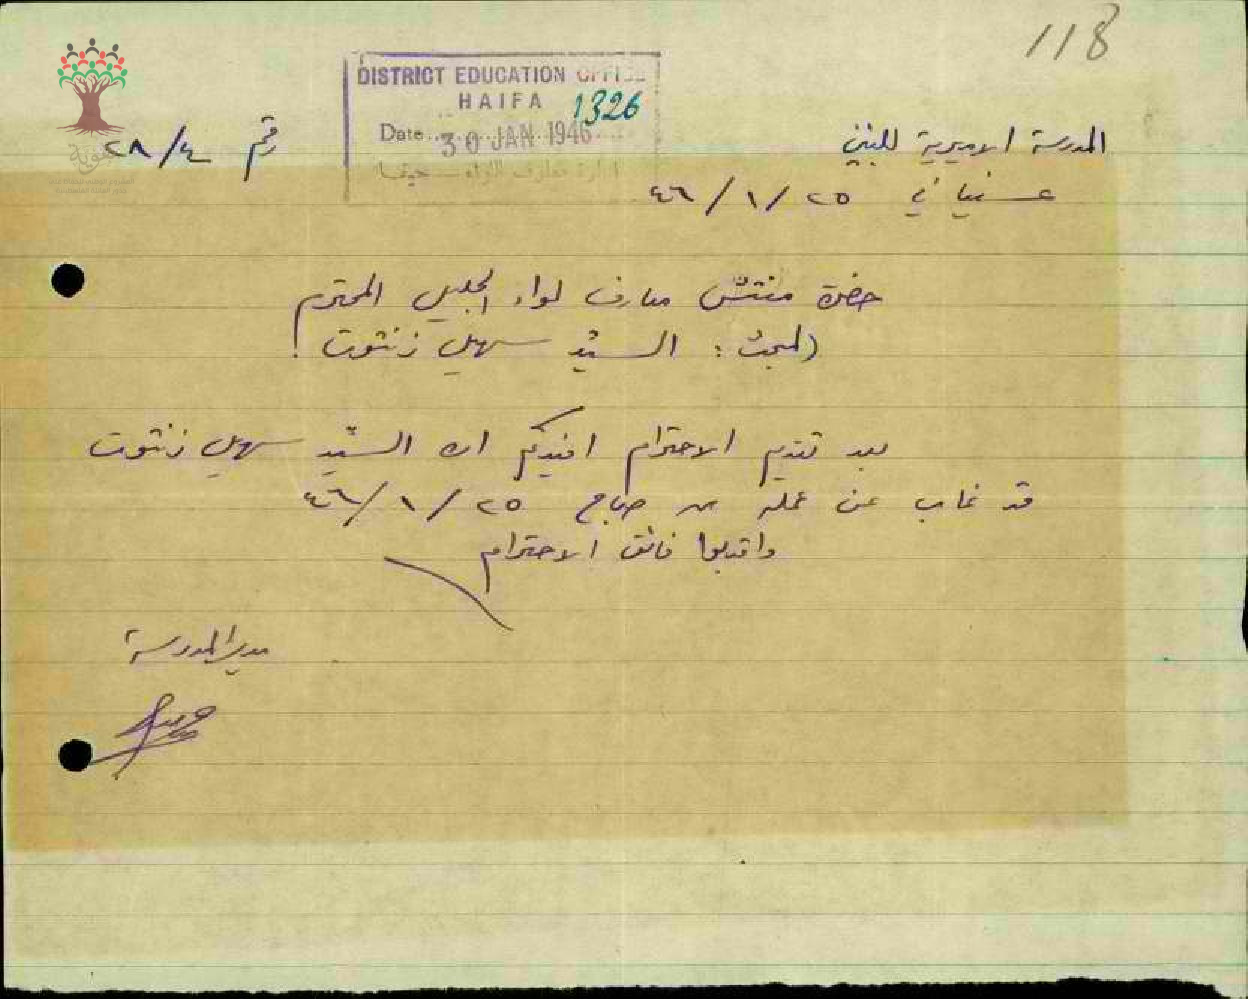 118
DISTRICT EDUCATION OFFICE
HAIFA
1326
Date 30 JAN 1946
ادارة معارف اللواء – حيفا
هوية
رقم ٤/٢٨
المدرسة الاميرية للبنين
عسفيا في ٢٥/١/٤٦
حضرة مفتش معارف لواء الجليل المحترم
المبحث: السيّد سهيل زنتوت!
بعد تقديم الاحترام افيدكم ان السيّد سهيل زنتوت
قد غاب عن عمله من صباح ٢٥/١/٤٦
واقبلوا فائق الاحترام
مدير المدرسة